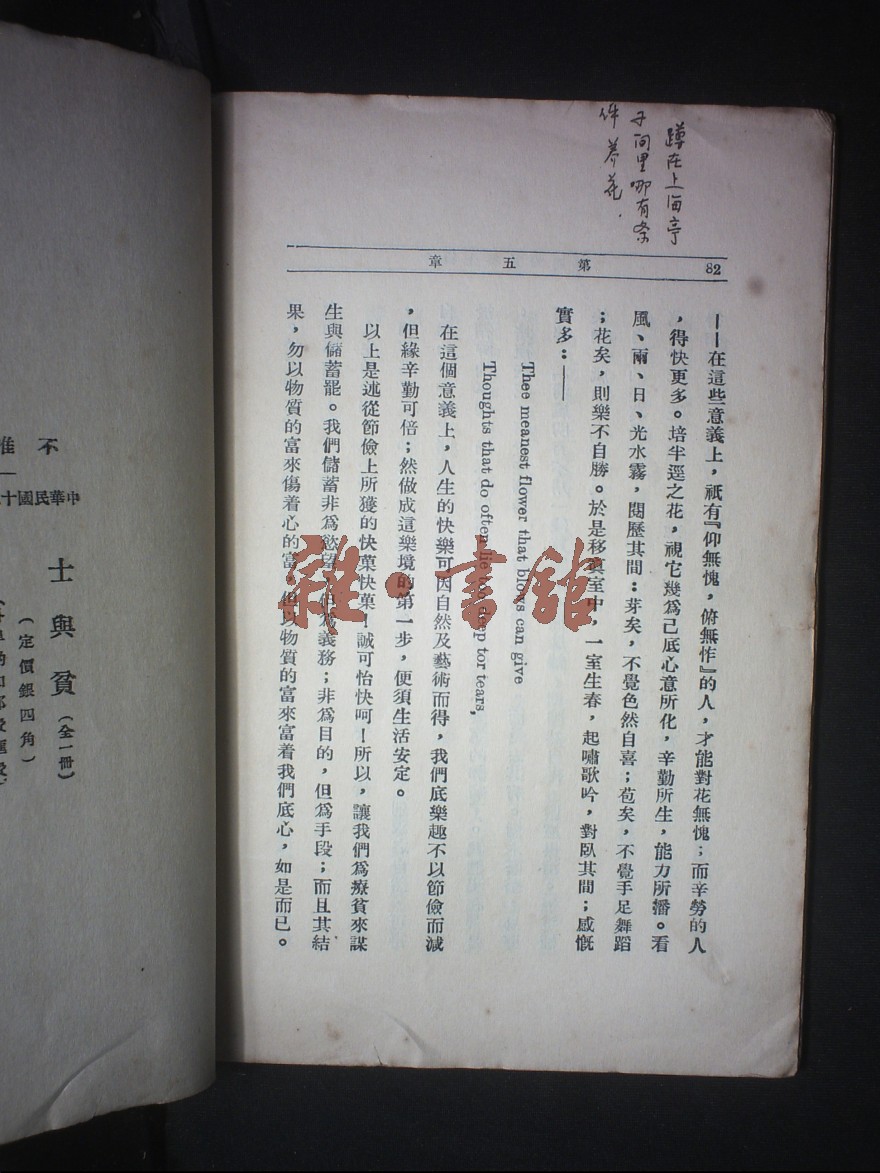 蹲在上海亭
子间里哪有条
件养花.
82
第五章
——在這些意義上，祇有『仰無愧，俯無怍』的人，才能對花無愧；而辛勞的人
，得快更多。培半逕之花，視它幾爲己底心意所化，辛勤所生，能力所播。看
風、雨、日、光水霧，閱歷其間：芽矣，不覺色然自喜；苞矣，不覺手足舞蹈
；花矣，則樂不自勝。於是移置室中，一室生春，起嘯歌吟，對臥其間；感慨
實多：——
Thee meanest flower that blows can give
Thoughts that do often lie too deep tor tears,
在這個意義上，人生的快樂可因自然及藝術而得，我們底樂趣不以節儉而減
，但緣辛勤可倍；然做成這樂境的第一步，便須生活安定。
以上是述從節儉上所獲的快菓快菓！誠可怡快呵！所以，讓我們爲療貧來謀
生與儲蓄罷。我們儲蓄非爲慾望，但爲義務；非爲目的，但爲手段；而且其結
果，勿以物質的富來傷着心的富，但以物質的富來富着我們底心，如是而已。
不
中華民國十
士與貧（全一冊）
（定價銀四角）
雜·書館